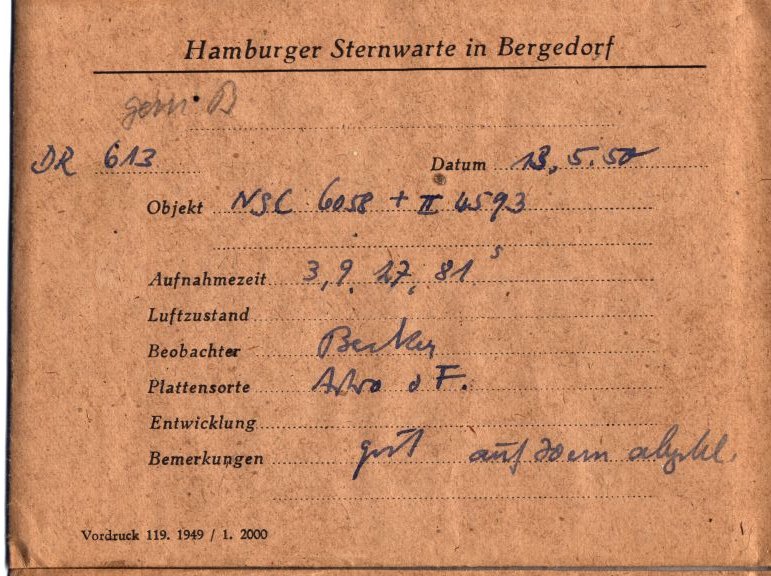 Hamburger Sternwarte in Bergedorf
gem. B
DR 613
Datum 13.5.50
Objekt NGC 6058 + II 4593
Aufnahmezeit 3, 9, 27, 81 s
Luftzustand
Beobachter Becker
Plattensorte Astro o F.
Entwicklung
Bemerkungen gut auf
Vordruck 119. 1949 / 1. 2000